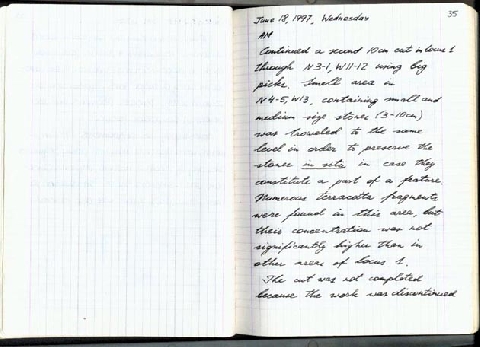 35
June 18, 1997, Wednesday
AM
Continued a second 10cm cut in locus 1
through N3-1, W11-12 using big
picks. Small area in
N4-5, W13, containing small and
medium size stones (3-10cm)
was troweled to the same
level in order to preserve the
stones in situ in case they
constitute a part of a feature.
Numerous terracotta fragments
were found in this area, but
their concentration was not
significantly higher than in
other areas of Locus 1.
The cut was not completed
because the work was discontinued